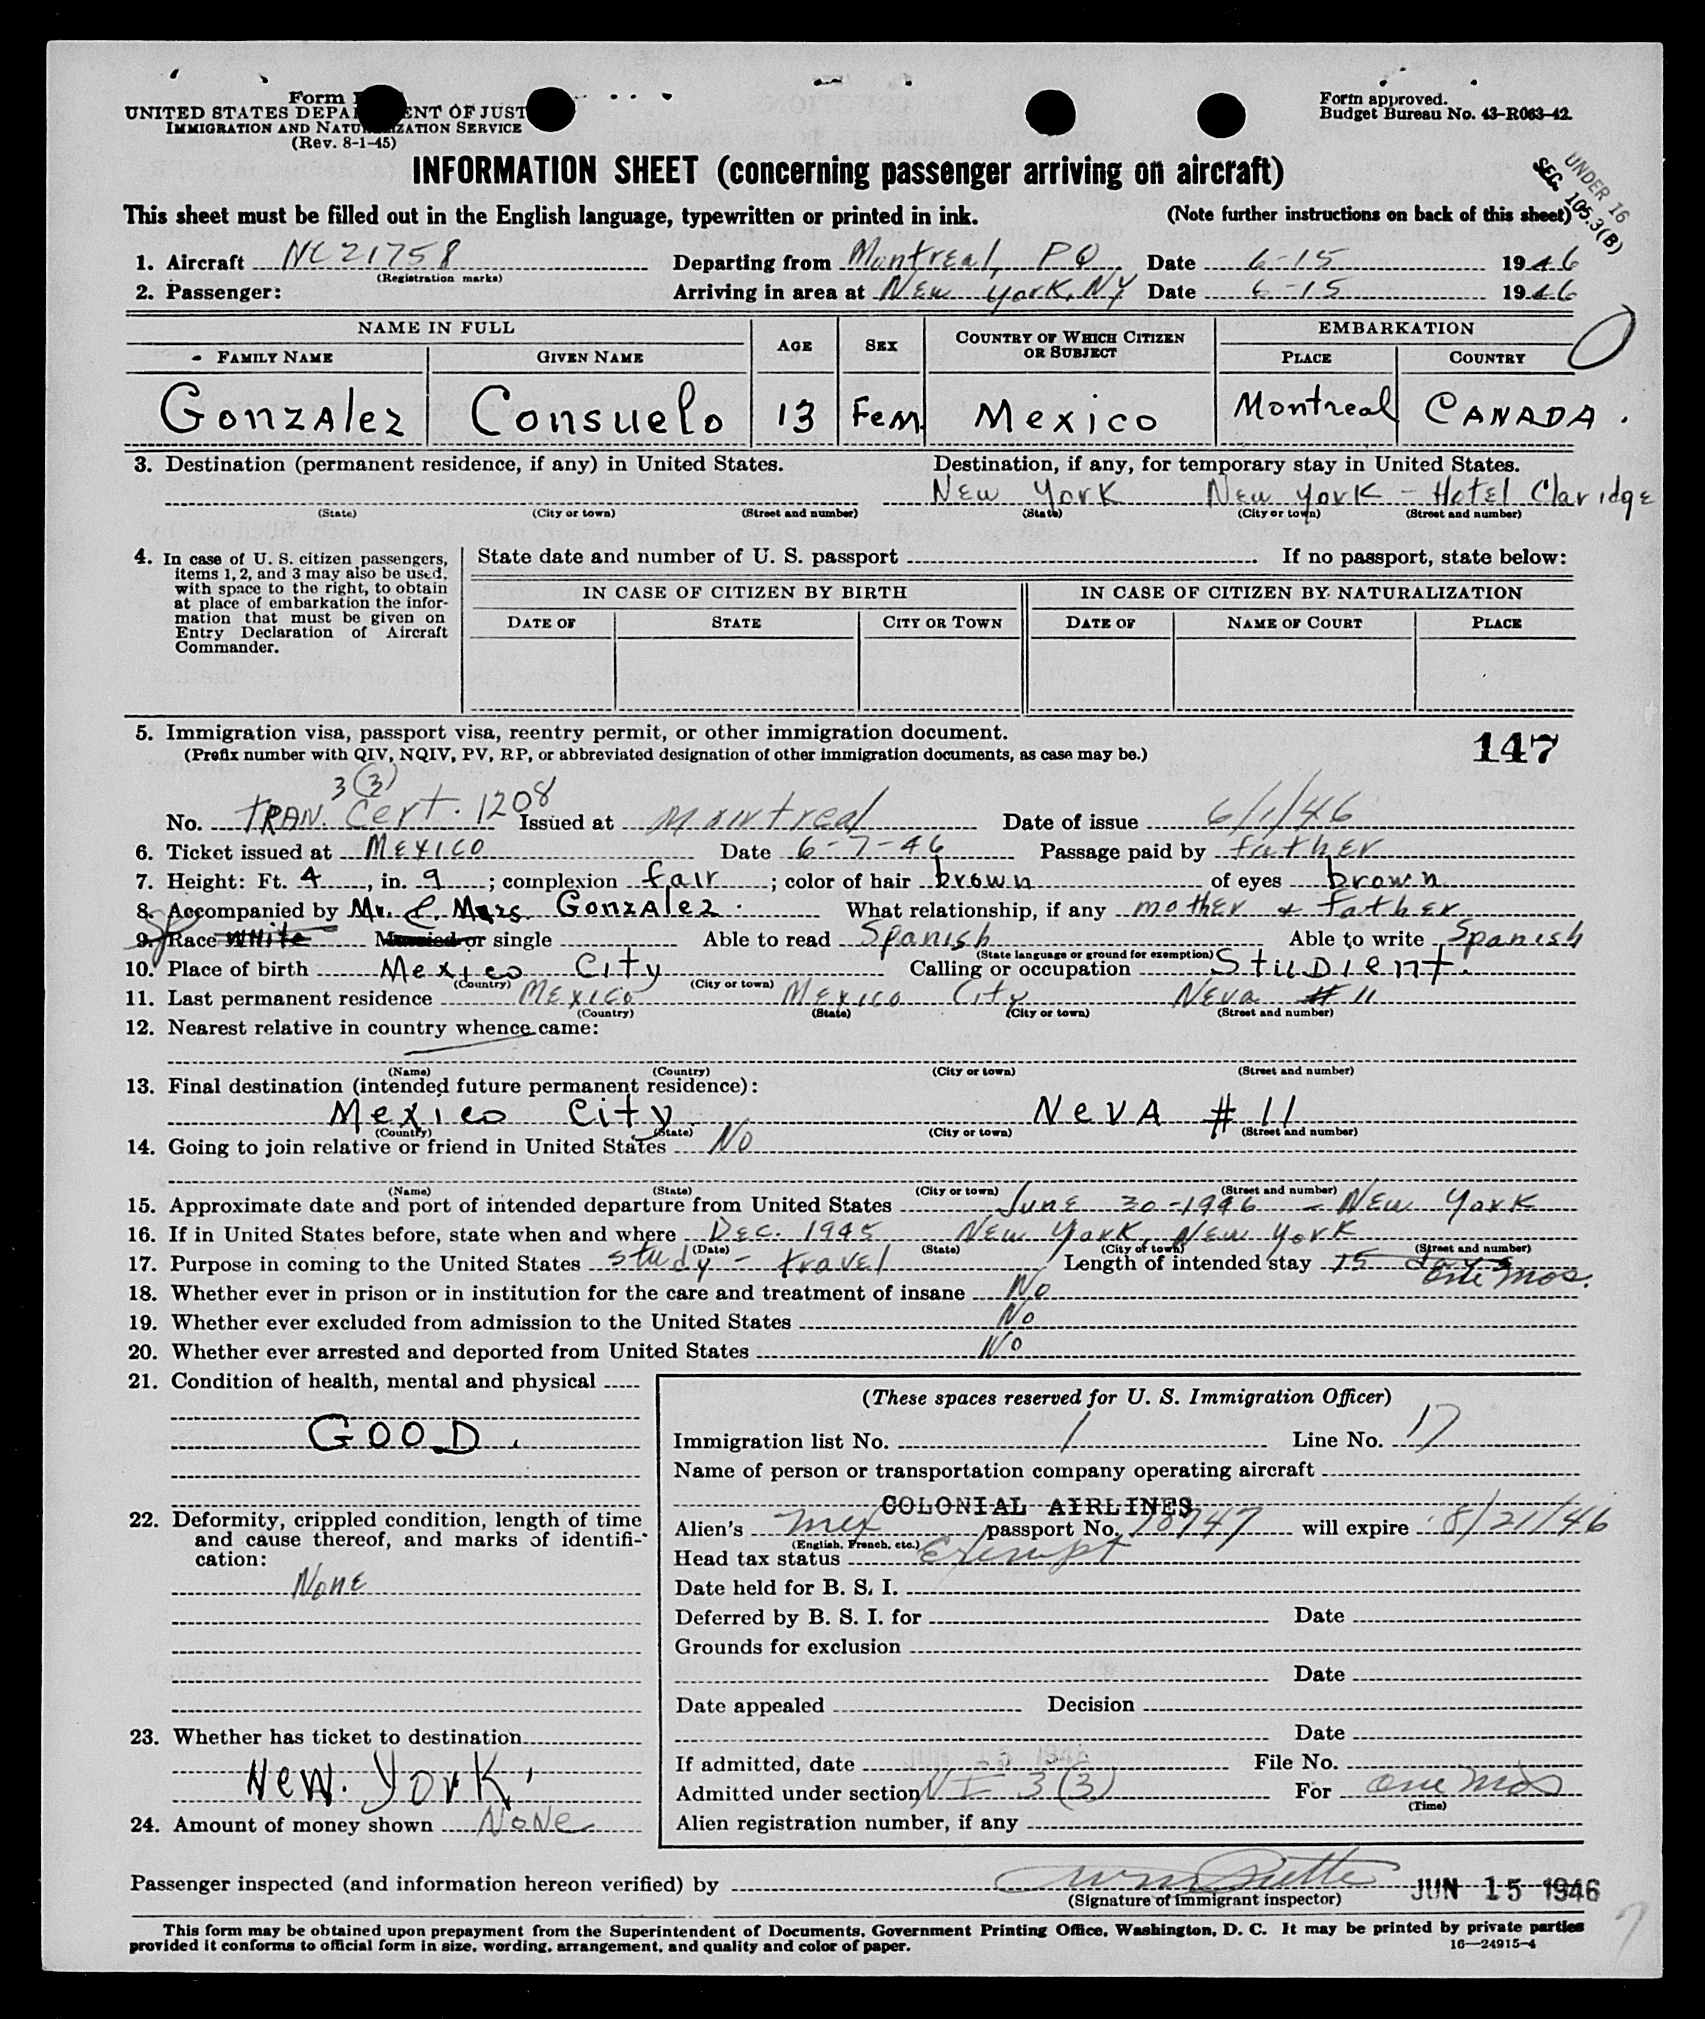 Form
UNITED STATES DEPARTMENT OF JUSTICE
IMMIGRATION AND NATURALIZATION SERVICE
(Rev. 8-1-45)
Form approved.
Budget Bureau No. 43-R063-42.
INFORMATION SHEET (concerning passenger arriving on aircraft)
UNDER 16
SEC. 105.3(B)
This sheet must be filled out in the English language, typewritten or printed in ink. (Note further instructions on back of this sheet)
1. Aircraft NC21758 Departing from Montreal, PQ Date 6-15 1946
(Registration marks)
2. Passenger: Arriving in area at New York, NY Date 6-15 1946
NAME IN FULL AGE SEX COUNTRY OF WHICH CITIZEN OR SUBJECT EMBARKATION
FAMILY NAME GIVEN NAME PLACE COUNTRY
Gonzalez Consuelo 13 Fem. Mexico Montreal CANADA.
3. Destination (permanent residence, if any) in United States. Destination, if any, for temporary stay in United States.
New York New York - Hotel Claridge
(State) (City or town) (Street and number) (State) (City or town) (Street and number)
4. In case of U. S. citizen passengers, items 1, 2, and 3 may also be used, with space to the right, to obtain at place of embarkation the information that must be given on Entry Declaration of Aircraft Commander.
State date and number of U. S. passport If no passport, state below:
IN CASE OF CITIZEN BY BIRTH IN CASE OF CITIZEN BY NATURALIZATION
DATE OF STATE CITY OR TOWN DATE OF NAME OF COURT PLACE
5. Immigration visa, passport visa, reentry permit, or other immigration document.
(Prefix number with QIV, NQIV, PV, RP, or abbreviated designation of other immigration documents, as case may be.)
147
3 (3)
No. TRAN. Cert. 1208 Issued at Montreal Date of issue 6/1/46
6. Ticket issued at Mexico Date 6-7-46 Passage paid by father
7. Height: Ft. 4, in. 9; complexion fair; color of hair brown of eyes brown
8. Accompanied by Mr. & Mrs. Gonzalez. What relationship, if any mother & father
9. Race White Married or single Able to read Spanish Able to write Spanish
(State language or ground for exemption)
10. Place of birth Mexico City Calling or occupation Studient.
(Country) (City or town)
11. Last permanent residence Mexico Mexico City Neva # 11
(Country) (State) (City or town) (Street and number)
12. Nearest relative in country whence came:
(Name) (Country) (City or town) (Street and number)
13. Final destination (intended future permanent residence):
Mexico City Neva # 11
(Country) (State) (City or town) (Street and number)
14. Going to join relative or friend in United States No
(Name) (State) (City or town) (Street and number)
15. Approximate date and port of intended departure from United States June 30-1946 - New York
16. If in United States before, state when and where Dec. 1945 New York, New York
(Date) (State) (City of town) (Street and number)
17. Purpose in coming to the United States study - travel Length of intended stay 15 days one mos.
18. Whether ever in prison or in institution for the care and treatment of insane No
19. Whether ever excluded from admission to the United States No
20. Whether ever arrested and deported from United States No
21. Condition of health, mental and physical
GOOD.
22. Deformity, crippled condition, length of time and cause thereof, and marks of identification:
None
23. Whether has ticket to destination
New. York.
24. Amount of money shown None
(These spaces reserved for U. S. Immigration Officer)
Immigration list No. 1 Line No. 17
Name of person or transportation company operating aircraft
COLONIAL AIRLINES
Alien's Mex passport No. 10747 will expire 8/21/46
(English, French, etc.)
Head tax status Exempt
Date held for B. S. I.
Deferred by B. S. I. for Date
Grounds for exclusion
Date
Date appealed Decision
Date
If admitted, date File No.
Admitted under section NI 3(3) For one mos
(Time)
Alien registration number, if any
Passenger inspected (and information hereon verified) by JUN 15 1946
(Signature of immigrant inspector)
This form may be obtained upon prepayment from the Superintendent of Documents, Government Printing Office, Washington, D. C. It may be printed by private parties
provided it conforms to official form in size, wording, arrangement, and quality and color of paper. 16—24915-4